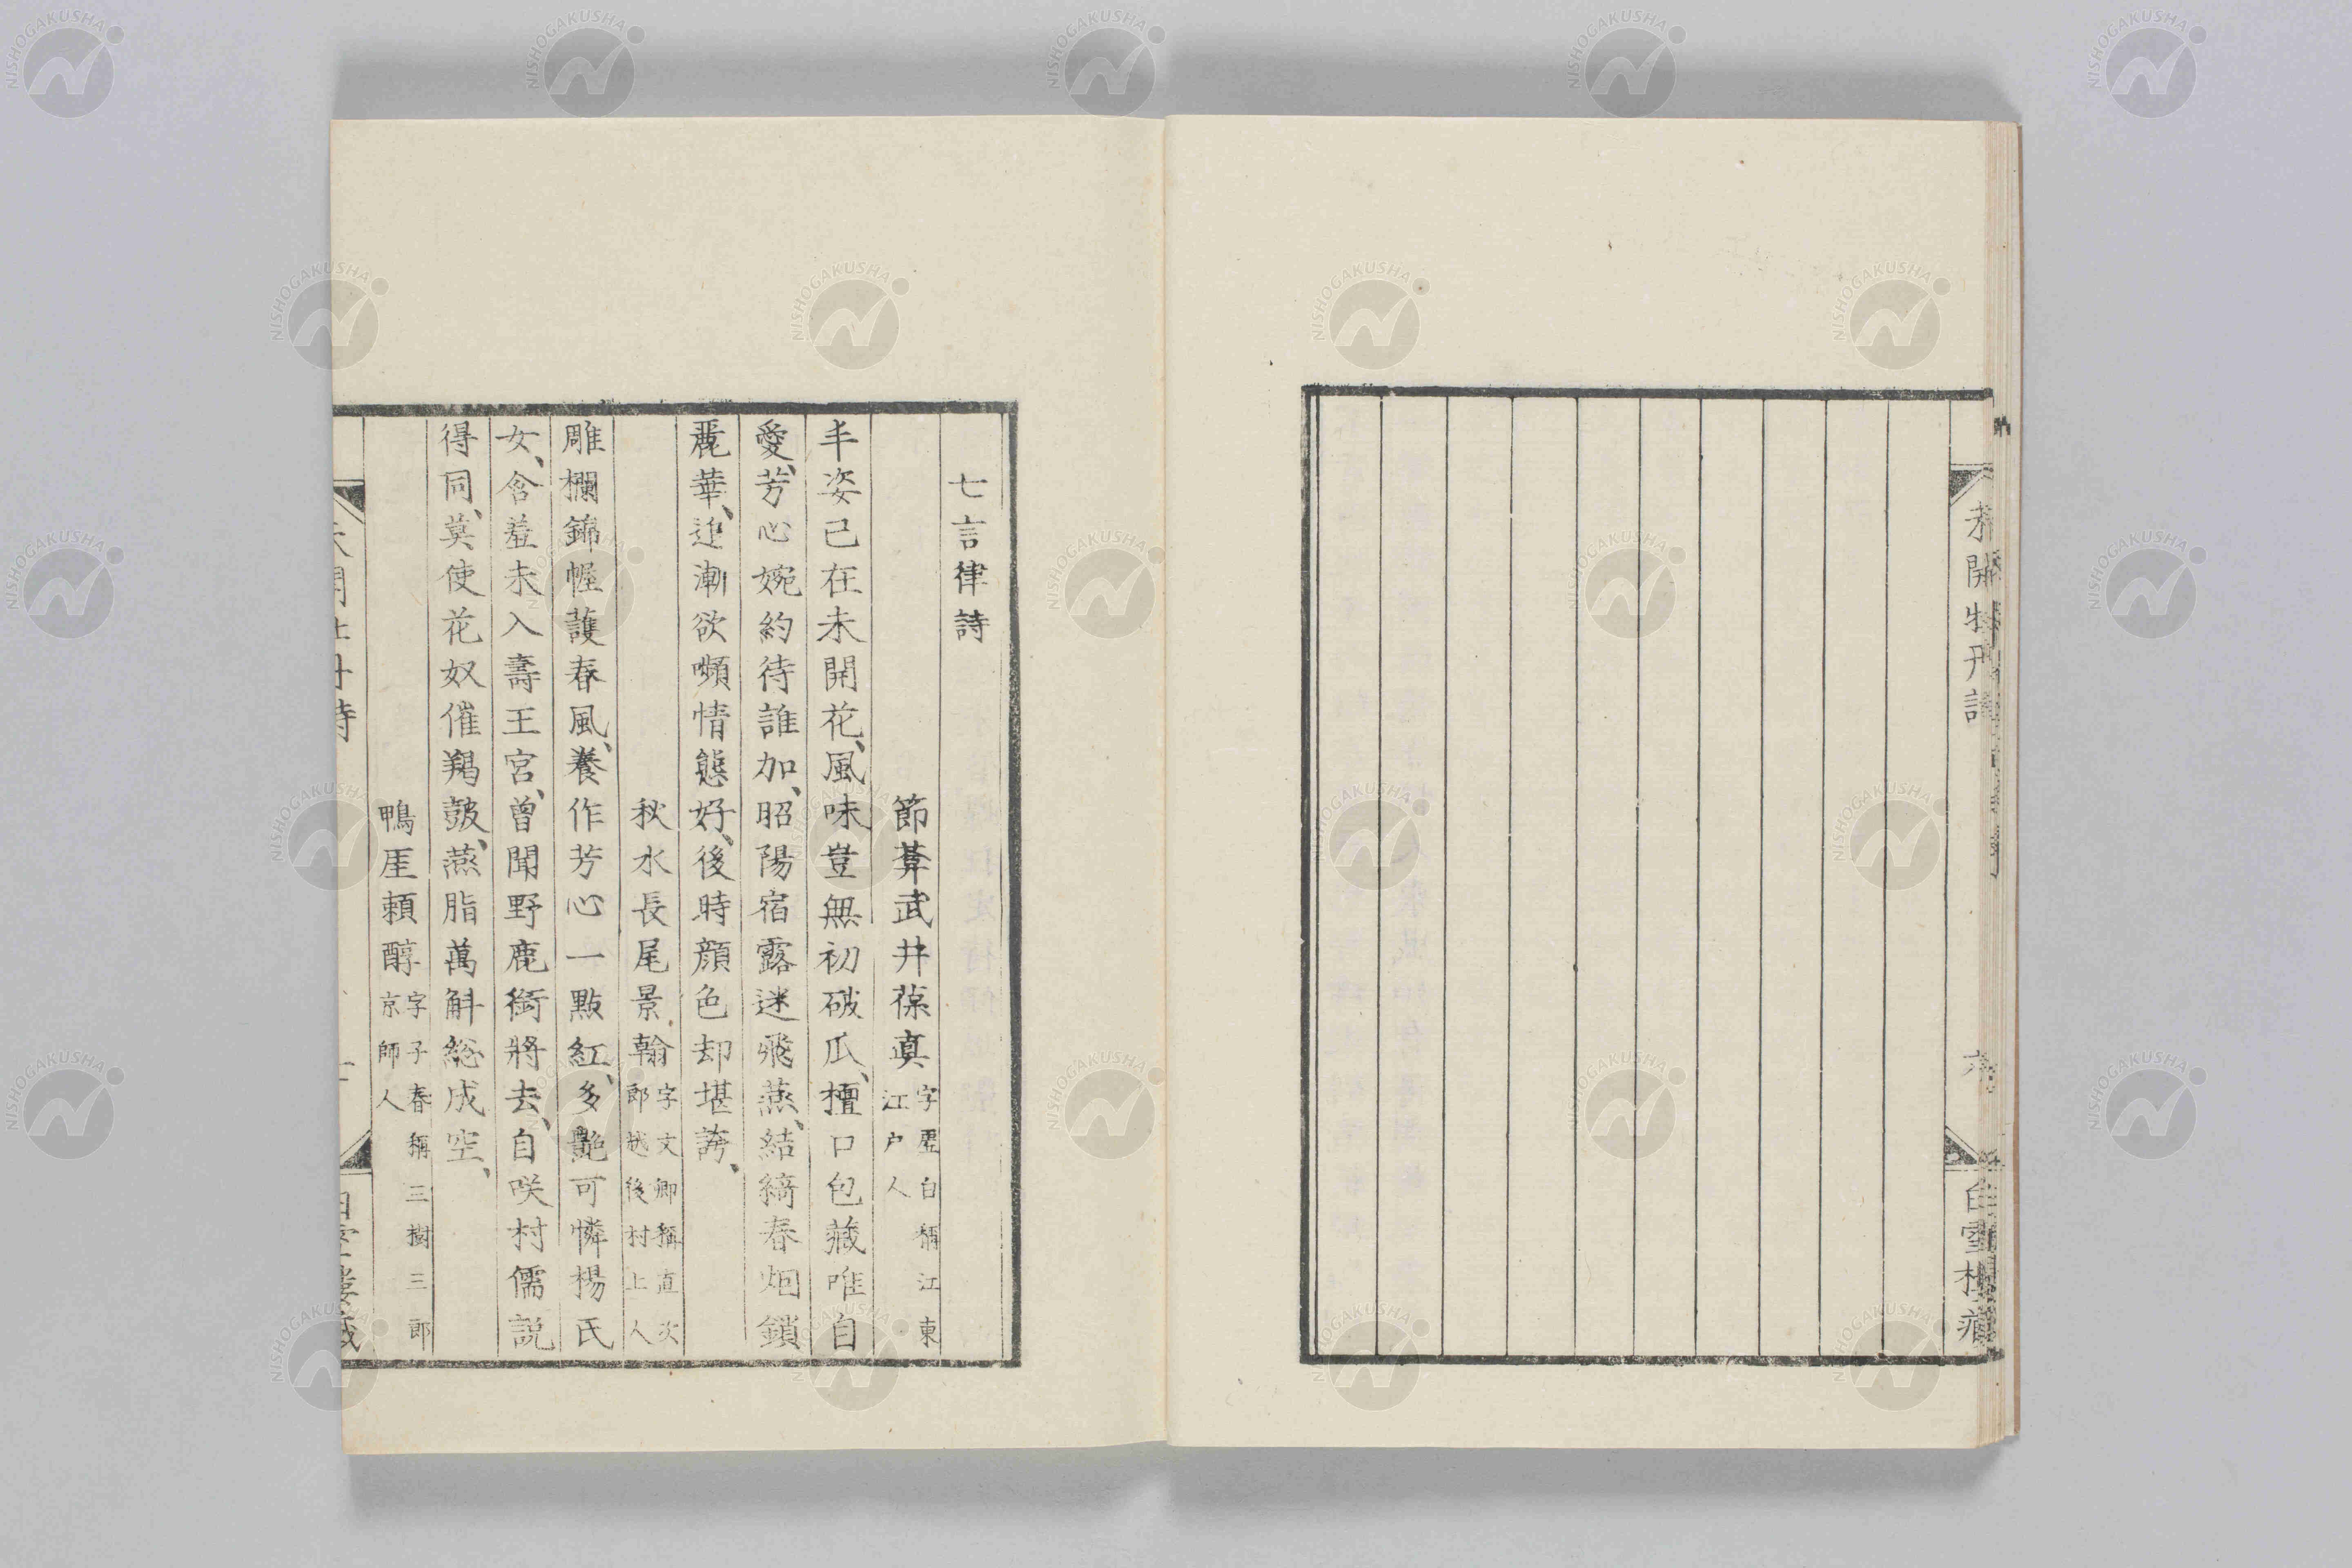 未開牡丹詩
六
白雪樓藏
七言律詩
節葊武井葆真 字虛白稱江東
江戶人
丰姿已在未開花、風味豈無初破瓜、檀口包藏唯自
愛、芳心婉約待誰加、昭陽宿露迷飛燕、結綺春烟鎖
麗華、迎漸欲嚬情態好、後時顔色却堪誇、
秋水長尾景翰 字文卿稱直次
郎越後村上人
雕欄錦幄護春風、養作芳心一點紅、多艷可憐楊氏
女、含羞未入壽王宮、曾聞野鹿銜將去、自咲村儒説
得同、莫使花奴催羯皷、燕脂萬斛総成空、
鴨厓頼醇 字子春稱三樹三郎
京師人